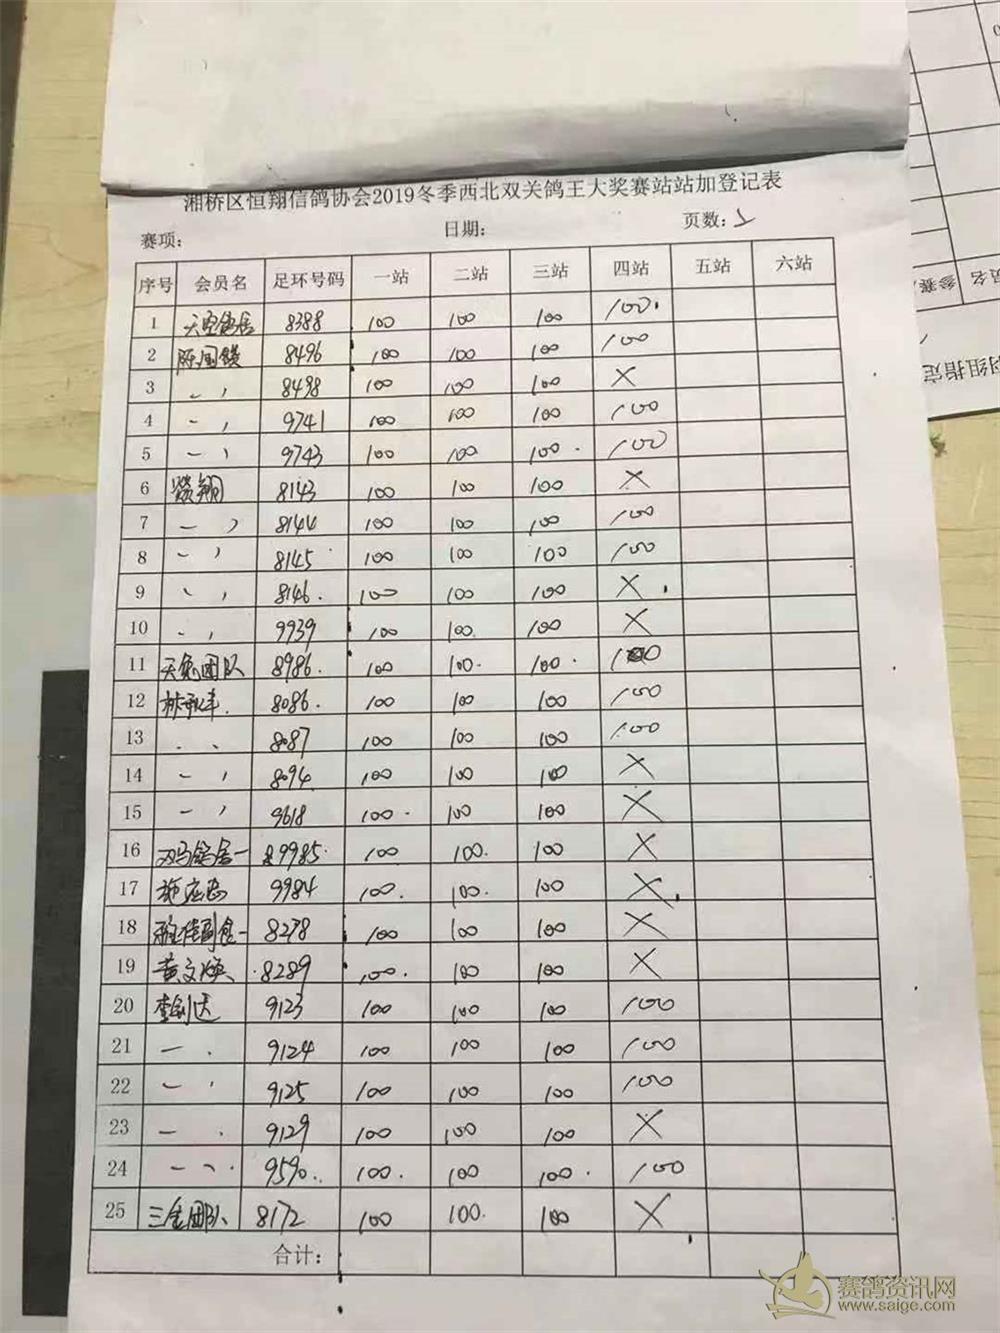 湘桥区恒翔信鸽协会2019冬季西北双关鸽王大奖赛站站加登记表
赛项: 日期: 页数:
序号 会员名 足环号码 一站 二站 三站 四站 五站 六站
1 天空鸽居 8388 100 100 100 100.
2 陈国镇 8496 100 100 100 100
3 〃 8498 100 100 100 ×
4 〃 9741 100 100 100 100
5 〃 9743 100 100 100. 100
6 翔 8143 100 100 100 ×
7 〃 8144 100 100 100 100
8 〃 8145 100 100 100 100
9 〃 8146. 100 100 100 ×
10 〃 9939 100 100. 100 ×
11 天 团队 8986. 100 100. 100. 100
12 林 丰. 8086. 100 100 100 100
13 〃 8087 100 100 100 100
14 〃 8094 100 100 100 ×
15 〃 9618 100. 100 100 ×
16 双马鸽舍一 9985. 100 100. 100 ×
17 施应忠 9984 100. 100. 100 ×
18 8278 100 100 100 ×
19 黄文焕 8289 100. 100 100 ×
20 李 达 9123 100 100 100 100
21 〃 9124 100 100 100 100
22 〃 9125 100 100 100 100
23 〃 9129 100 100 100 ×
24 〃 9590. 100. 100 100. 100
25 三金团队 8172 100 100. 100 ×
合计:
员名 参赛
组指定
赛鸽资讯网
www.saige.com